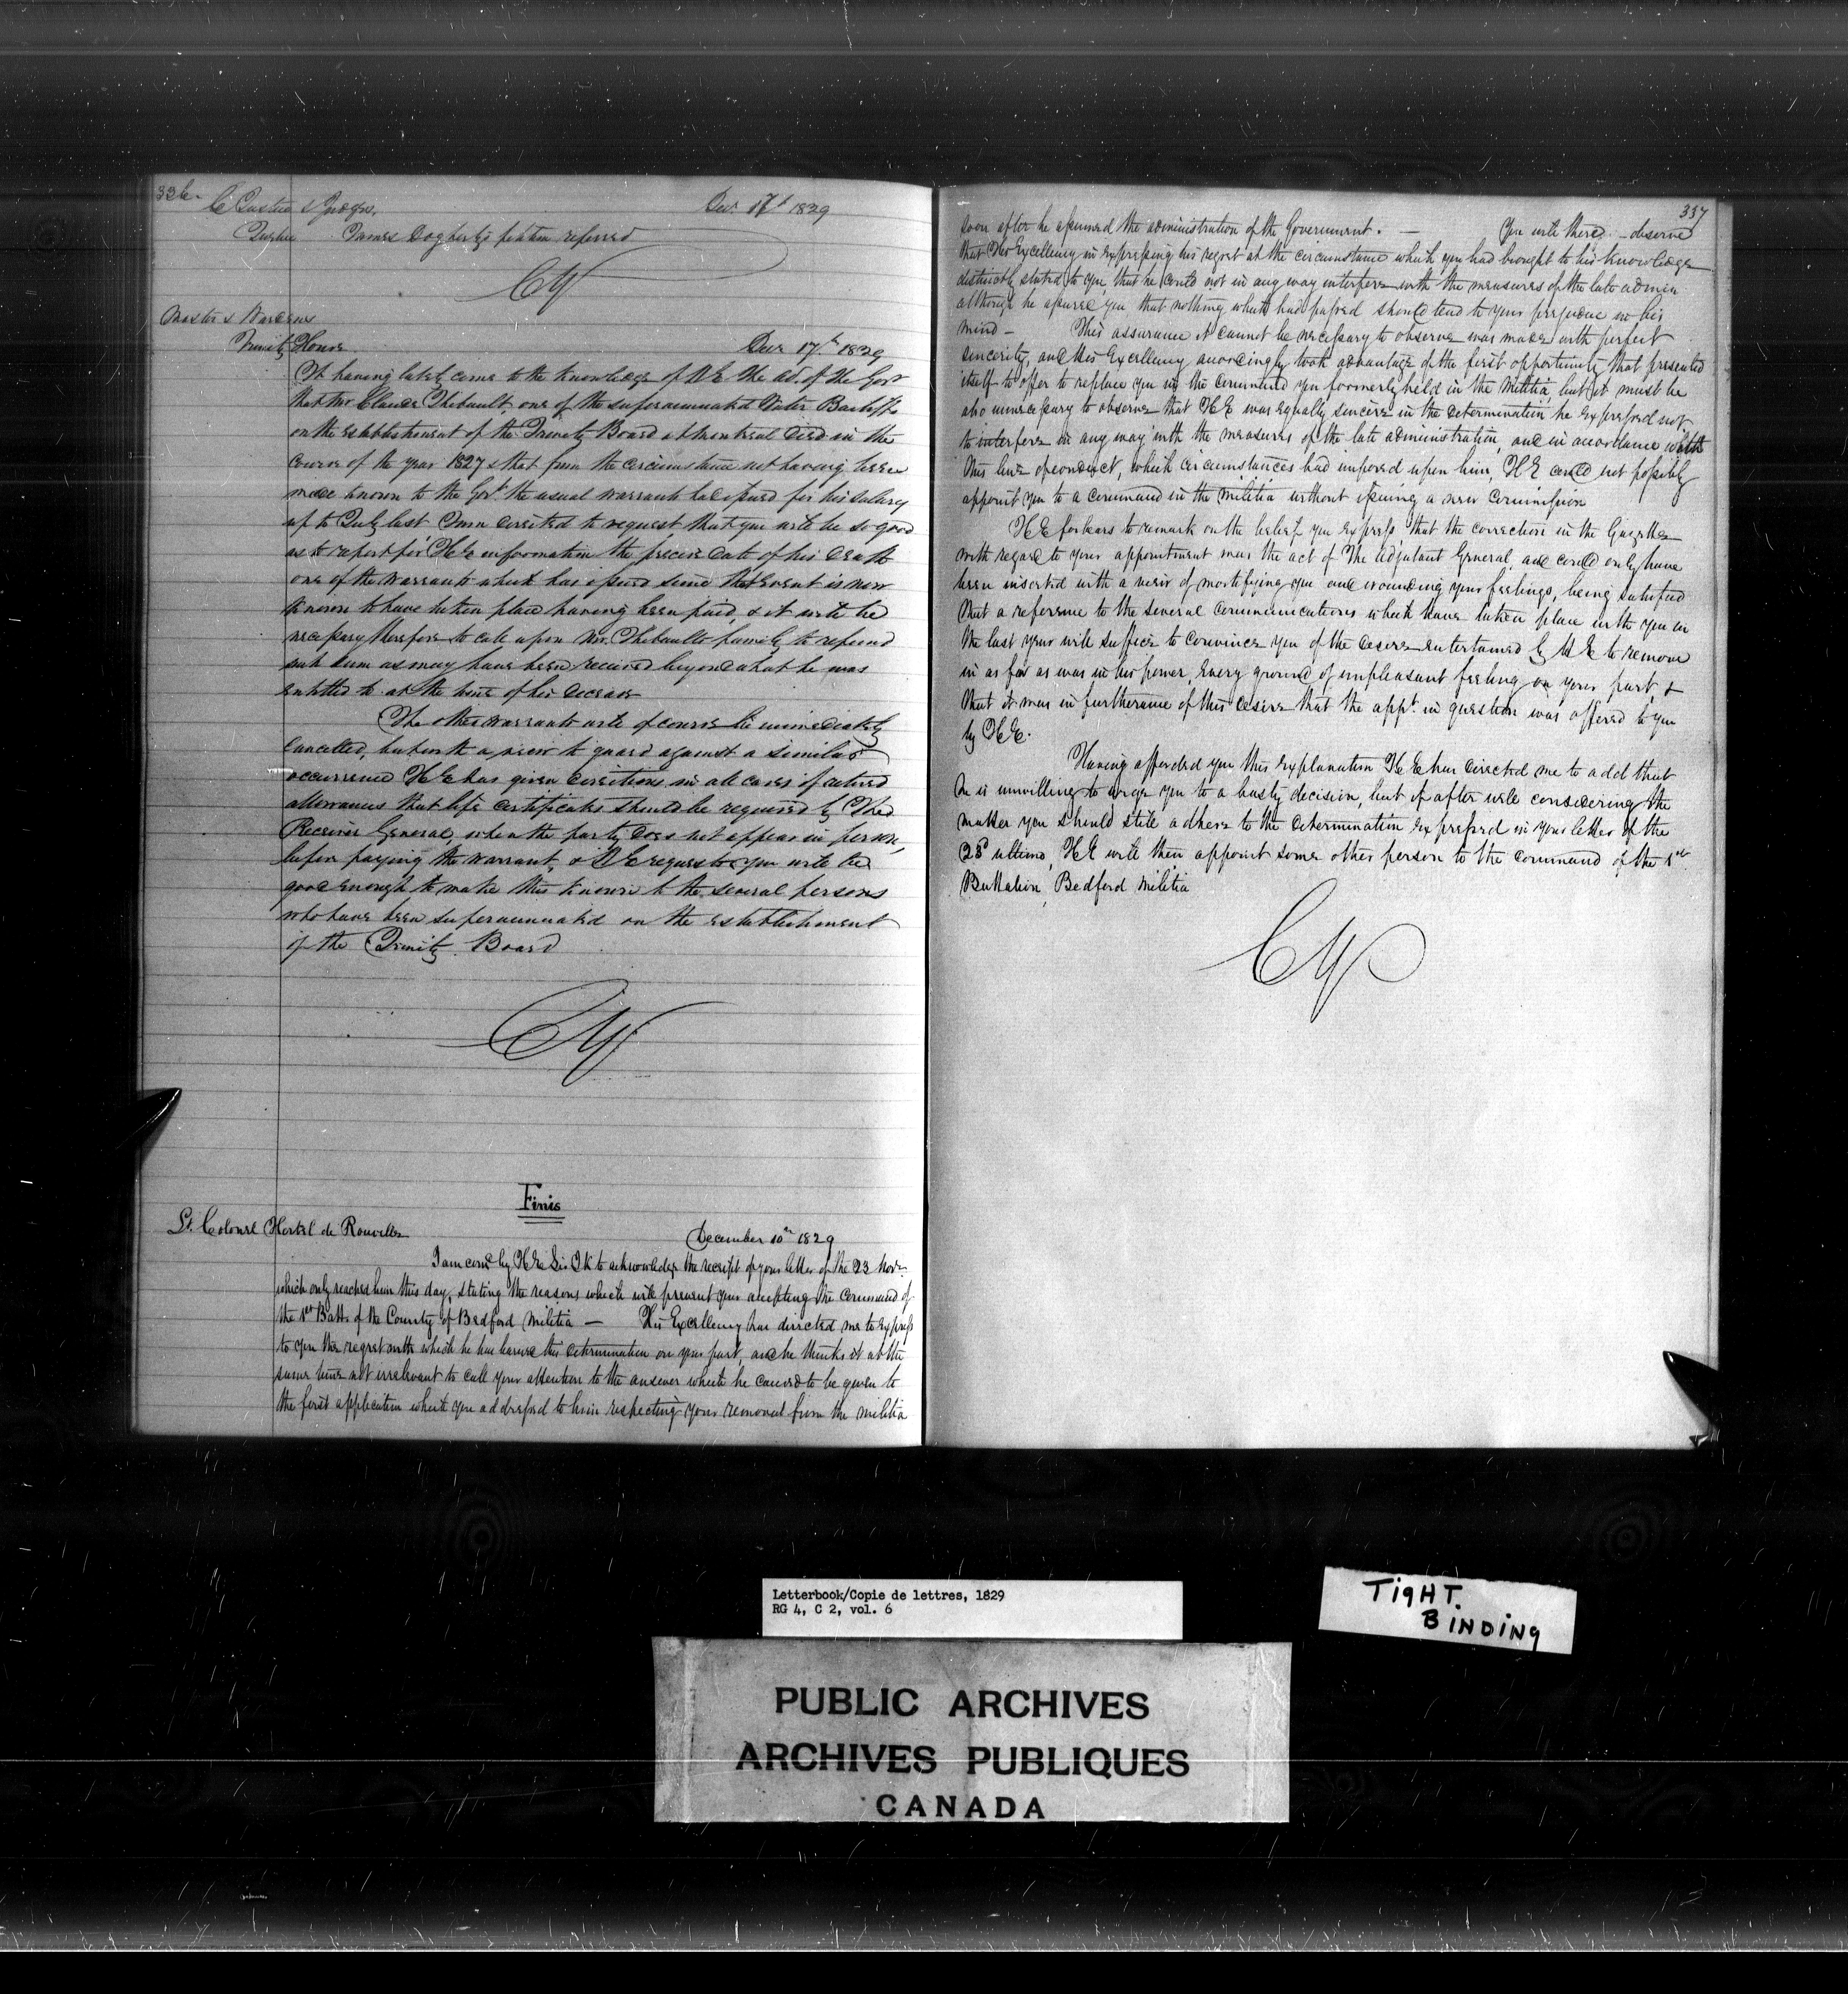 336.
C Justice & Judges, Decr 17th 1829
Quebec James Dogherty's petition referred
CY
Master & Wardens
Trinity House Decr 17th 1829
It having lately come to the knowledge of H E the Ad. of the Govt
that Mr Claude Thibault, one of the superannuated Water Bailiffs
on the establishment of the Trinity Board at Montreal died in the
course of the year 1827 & that from the circumstance not having been
made known to the Govt the usual warrants had issued for his salary
up to July last I am directed to request that you will be so good
as to report for H E information the precise date of his death
one of the warrants which has issued since that event is now
known to have taken place having been paid, & it will be
necessary therefore to call upon Mr. Thibault's family to refund
such sum as may have been received beyond what he was
entitled to at the time of his decease
The other warrants will of course be immediately
cancelled, but with a view to guard against a similar
occurrence H E has given directions in all cases of retired
allowances that life certificates should be required by The
Receiver General, when the party does not appear in person,
before paying the warrant, & H E requests you will be
good enough to make this known to the several persons
who have been superannuated on the establishment
of the Trinity Board
CY
Finis
Lt. Colonel Hertel de Rouville December 10th 1829
I am comd by H E Sir J K to acknowledge the receipt of your letter of the 23 Novr
which only reached him this day, stating the reasons which will prevent your accepting the command of
the 1st Battn of the County of Bedford Militia — His Excellency has directed me to express
to you the regret with which he has learned this determination on your part, and he thinks it at the
same time not irrelevant to call your attention to the answer which he caused to be given to
the first application which you addressed to him respecting your removal from the militia
337
soon after he assumed the administration of the Government. — You will there observe
that His Excellency in expressing his regret at the circumstance which you had brought to his knowledge
distinctly stated to you, that he could not in any way interfere with the measures of the late admin
although he assured you that nothing which had passed should tend to your prejudice in his
mind — This assurance it cannot be necessary to observe was made with perfect
sincerity, and His Excellency accordingly took advantage of the first opportunity that presented
itself to offer to replace you in the command you formerly held in the Militia, but it must be
also unnecessary to observe that H E was equally sincere in the determination he expressed not
to interfere in any way with the measures of the late administration, and in accordance with
this line of conduct, which circumstances had imposed upon him, H E could not possibly
appoint you to a command in the militia without issuing a new Commission
H E forbears to remark on the belief you express that the correction in the Gazette
with regard to your appointment was the act of The Adjutant General, and could only have
been inserted with a view of mortifying you and wounding your feelings, being satisfied
that a reference to the several communications which have taken place with you in
the last year will suffice to convince you of the desire entertained by H E to remove
in as far as was in his power, every ground of unpleasant feeling on your part, &
that it was in furtherance of this desire that the appt in question was offered to you
by H E.
Having afforded you this explanation H E has directed me to add that
he is unwilling to urge you to a hasty decision, but if after well considering the
matter you should still adhere to the determination expressed in your letter of the
23d ultimo, H E will then appoint some other person to the command of the 1st
Battalion, Bedford Militia
CY
Letterbook/Copie de lettres, 1829
RG 4, C 2, vol. 6
TIGHT.
BINDING
PUBLIC ARCHIVES
ARCHIVES PUBLIQUES
CANADA